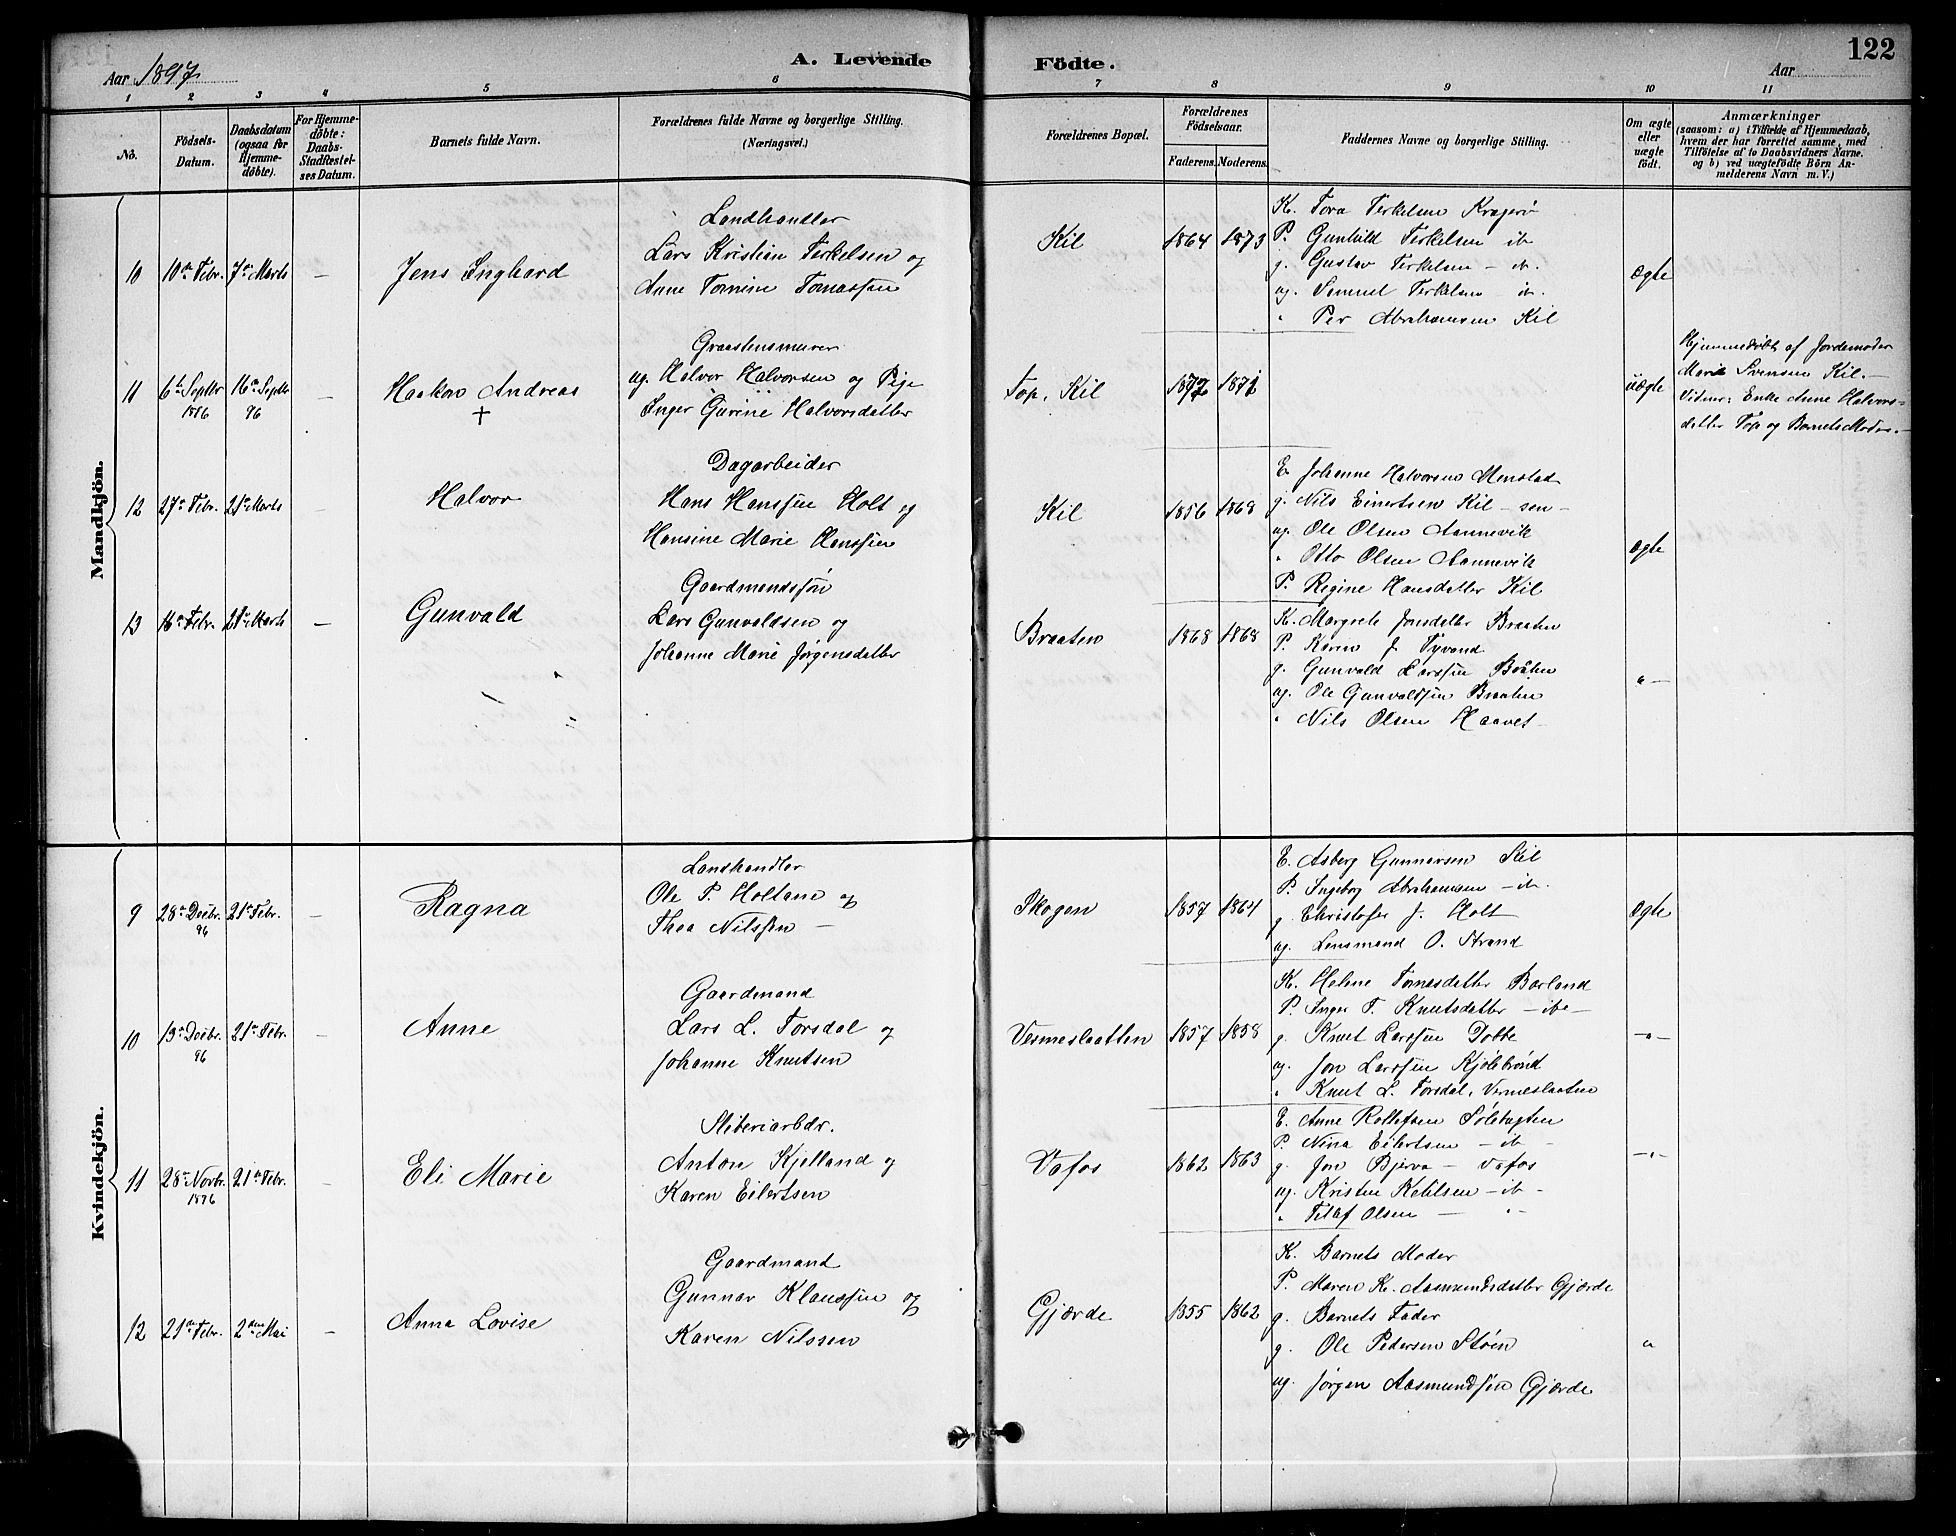 122
Aar 1897
A. Levende Födte.
Aar
1 2 3 4 5 6 7 8 9 10 11
No.
Födsels-Datum.
Daabsdatum (ogsaa for Hjemme-döbte).
For Hjemme-döbte: Daabs-Stadfæstel-ses Datum.
Barnets fulde Navn.
Forældrenes fulde Navne og borgerlige Stilling.
(Næringsvei.)
Forældrenes Bopæl.
Forældrenes Födselsaar.
Faderens. Moderens.
Faddernes Navne og borgerlige Stilling.
Om ægte eller uægte födt.
Anmærkninger
(saasom: a) i Tilfælde af Hjemmedaab,
hvem der har forrettet samme, med
Tilföielse af to Daabsvidners Navne,
og b) ved uægtefödte Börn An-
melderens Navn m. V.)
Mandkjön.
10 10de Febr. 7de Marts — Jens Inghard
Landhandler
Lars Kristian Terkelsen og
Anne Tomine Tomassen
Kil 1864 1873
K. Tora Terkelsen Kragerö
P. Gunhild Terkelsen ib
g. Gustav Terkelsen — ib.
ug. Semmel Terkelsen — ib.
" Per Abrahamsen Kil
Ægte
11 6te Septbr 1896 16de Septbr 96 — Haakon Andreas †
Graastensmurer
ug. Halvor Halvorsen og Pige
Inger Gurine Halvorsdatter
Top, Kil 1872 1871
uægte
Hjemmedøbt af Jordemoder
Marie Svensen Kil. —
Vidner: Enke Anne Halvors-
datter Top og Barnets Moder. —
12 27de Febr. 21de Marts — Halvor
Dagarbeider
Hans Hanssen Holt og
Hansine Marie Hanssen
Kil 1856 1868
E. Johanne Halvorsen Menstad
g. Nils Einertsen Kil — sen —
ug. Ole Olsen Aannevik
" Otto Olsen Aannevik
P. Regine Hansdatter Kil
ægte
13 16de Febr. 21de Marts — Gunvald
Gaardmandssön
Lars Gunvaldsen og
Johanne Marie Jörgensdatter
Braaten 1868 1868
K. Margrete Jensdatter Braaten
P. Karen J. Tyvand
g. Gunvald Larssen Braaten
ug. Ole Gunvaldsen Braaten
" Nils Olsen Haavet —
" —
Kvindekjön.
9 28de Decbr. 96 21de Febr. — Ragna
Landhandler
Ole P. Holtane og
Thea Nilssen —
Skogen 1857 1864
E. Asberg Gunnarsen Kil
P. Ingeborg Abrahamsen — ib.
g. Christofer J. Holt
ug. Lensmand O. Strand
Ægte
10 13de Decbr. 96 21de Febr. — Anne
Gaardmand
Lars L. Torsdal og
Johanne Knutsen
Vesmeslaatten 1857 1858
K. Helene Tomasdatter Barland
P. Inger T. Knutsdatter — ibe —
g. Knut Larssen Dobbe
ug. Jon Larssen Kjölebrönd
" Knut L. Torsdal, Vesmeslaatten
— " —
11 28de Novbr. 1896 21de Febr. — Eli Marie
Sliberiarbdr.
Anton Kjelland og
Karen Eilertsen
Vafos 1862 1863
E. Anne Rollefsen Sölebugten
P. Nina Eilertsen — ib —
g. Jon Bjerva — Vafos
ug. Kristen Ketilsen — ib —
" Tellef Olsen — " —
— " —
12 21de Febr. 2den Mai — Anna Lovise
Gaardmand
Gunnar Klaussen og
Karen Nilssen
Gjærde 1855 1862
K. Barnets Moder
P. Maren K. Aasmundsdatter Gjærde
g. Barnets Fader
g. Ole Pedersen Stöen
ug. Jörgen Aasmundsen Gjærde
"